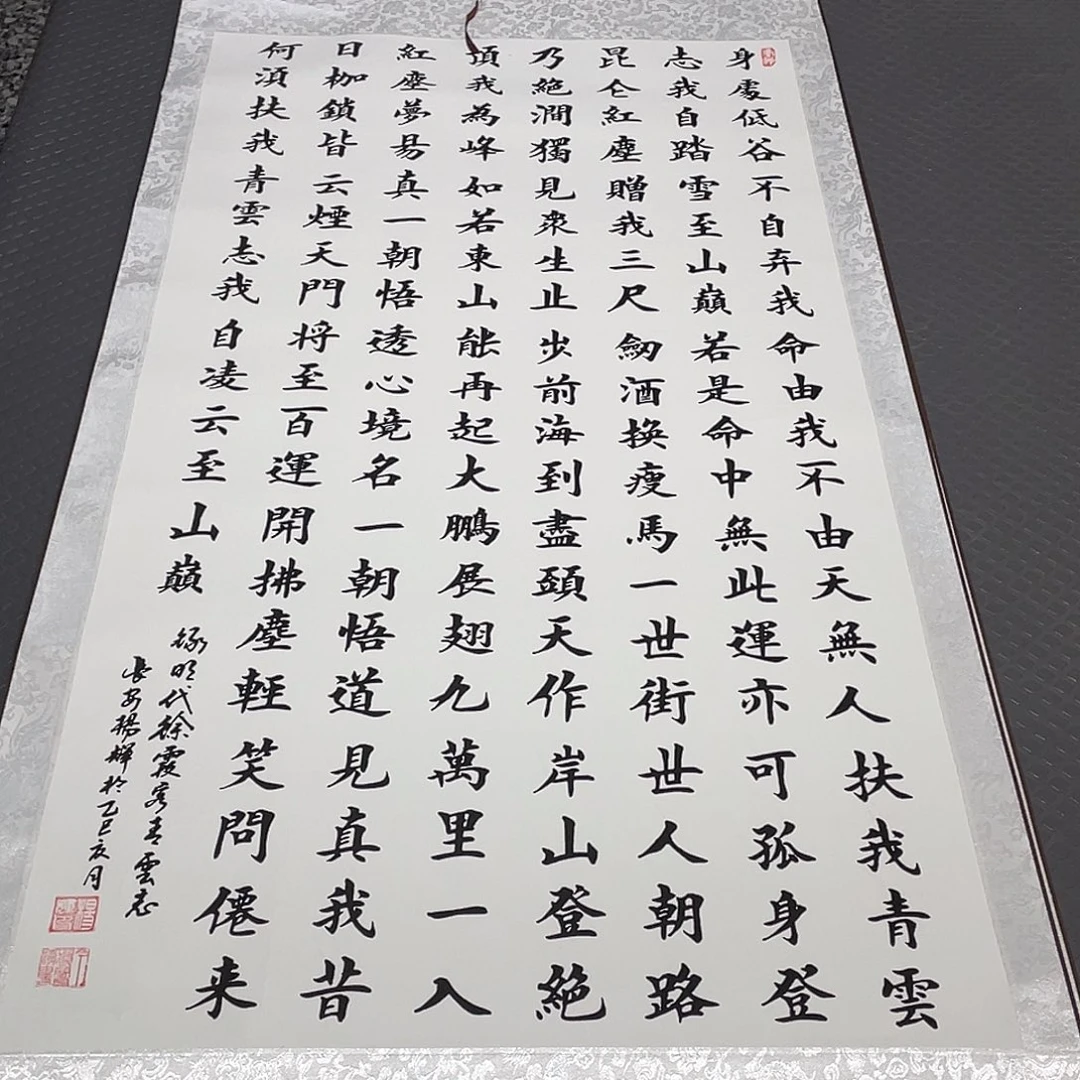 身處低谷不自弃我命由我不由天無人扶我青雲
志我自踏雪至山巔若是命中無此運亦可孤身登
昆仑紅塵贈我三尺劒酒換瘦馬一世街世人朝路
乃絕澗獨見衆生止步前海到盡頭天作岸山登絕
頂我為峰如若東山能再起大鵬展翅九萬里一入
紅塵夢易真一朝悟透心境名一朝悟道見真我昔
日枷鎖皆云煙天門将至百運開拂塵輕笑問僊来
何須扶我青雲志我自凌云至山巔
録明代徐霞客青雲志
長安楊輝於乙巳亥月